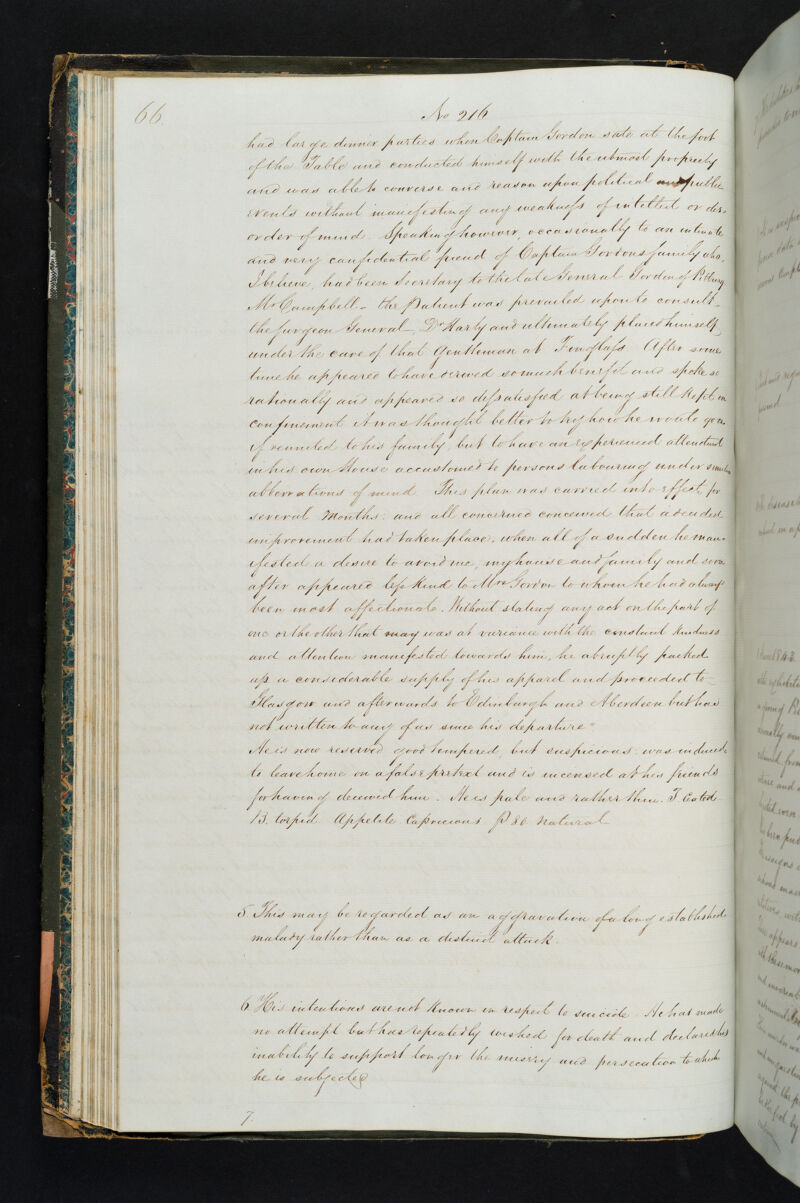 66
No 216
had large dinner parties when Captain Gordon sate at the foot
of the Table and conducted himself with the utmost propriety
and was able to converse and reason upon political and public
events without manifesting any weakness of intellect or dis-
order of mind. Speaking however, occasionally to an intimate
and very confidential friend of Captain Gordons family who
I believe, had been Secretary to the late General Gordon of Pitlurg
Mr Campbell - the Patient was prevailed upon to consult
the Surgeon General, Dr Harty and ultimately placed himself
under the care of that Gentleman at Finglass. After some
time he appeared to have derived so much benefit and spoke so
rationally and appeared so dissatisfied at being still kept in
confinement it was thought better to try how he would go on
if reunited to his family, but to have an experienced attendant
in his own House accustomed to persons labouring under similar
abborrations of mind. This plan was carried into effect, for
several Months: and all concerned conceived that a decided
improvement had taken place, when all of a sudden he man-
ifested a desire to avoid me, my house and family and soon
after appeared less kind to Mrs Gordon to whom he had always
been most affectionate. Without stating any act on the part of
one or the other that may was at variance with the constant kindness
and attention manifested towards him, he abruptly packed
up a considerable supply of his apparel and proceeded to
Glasgow and afterwards to Edinburgh and Aberdeen but has
not written to any of us since his departure"
He is now reserved good tempered, but suspicious: was induced
to leave home on a false pretext and is incensed at his friends
for having deceived him. He is pale and rather thin. T. Coated
B. torpid Appetite Capricious P 80 Natural
5. This may be regarded as an aggravation of a long established
malady rather than as a distinct attack.
6 His intentions are not known in respect to suicide. He has made
no attempt but has repeatedly wished for death and declared his
inability to support longer the misery and persecution to which
he is subjected
7.